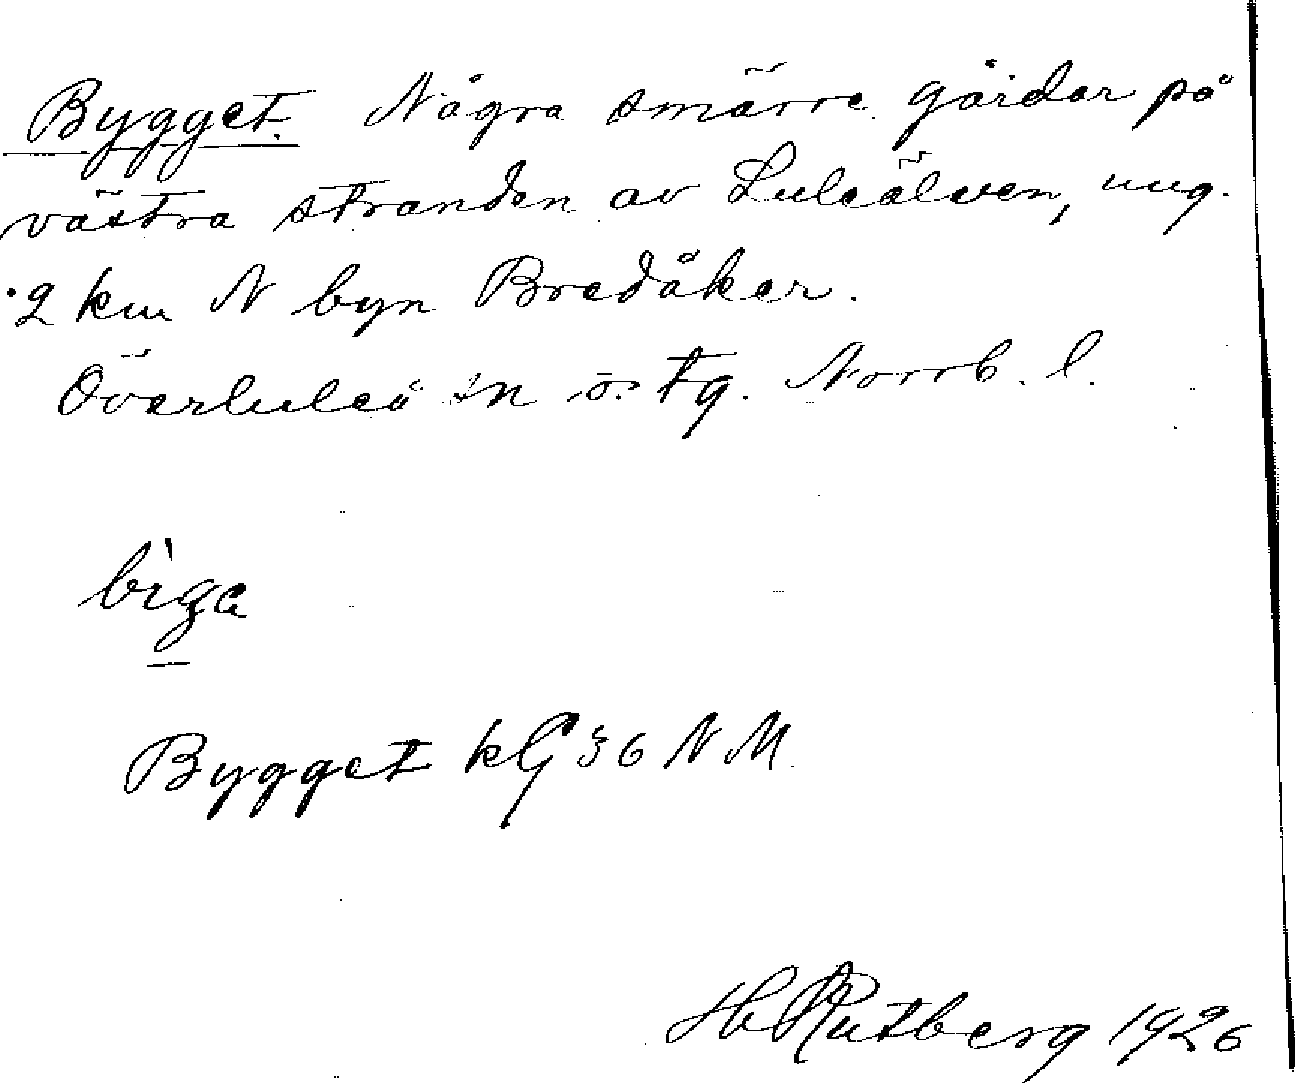 Bygget. Några smärre gårdar på
västra stranden av Luleälven, ung.
2 km N byn Bredåker.
Överluleå sn ö. tg. Norrb. l.
Bygget kG 36 NM
H Rutberg 1926